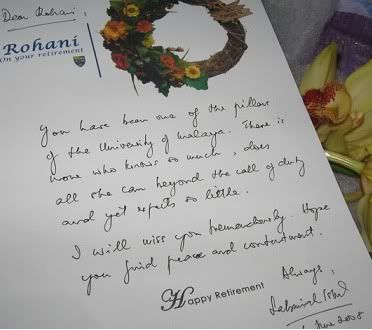 Dear Rohani,
Rohani
On your retirement
You have been one of the pillars
of the University of Malaya. There is
none who knows so much, does
all she can beyond the call of duty
and yet expects so little.
I will miss you tremendously. Hope
you find peace and contentment.
Always,
Happy Retirement
June 2008